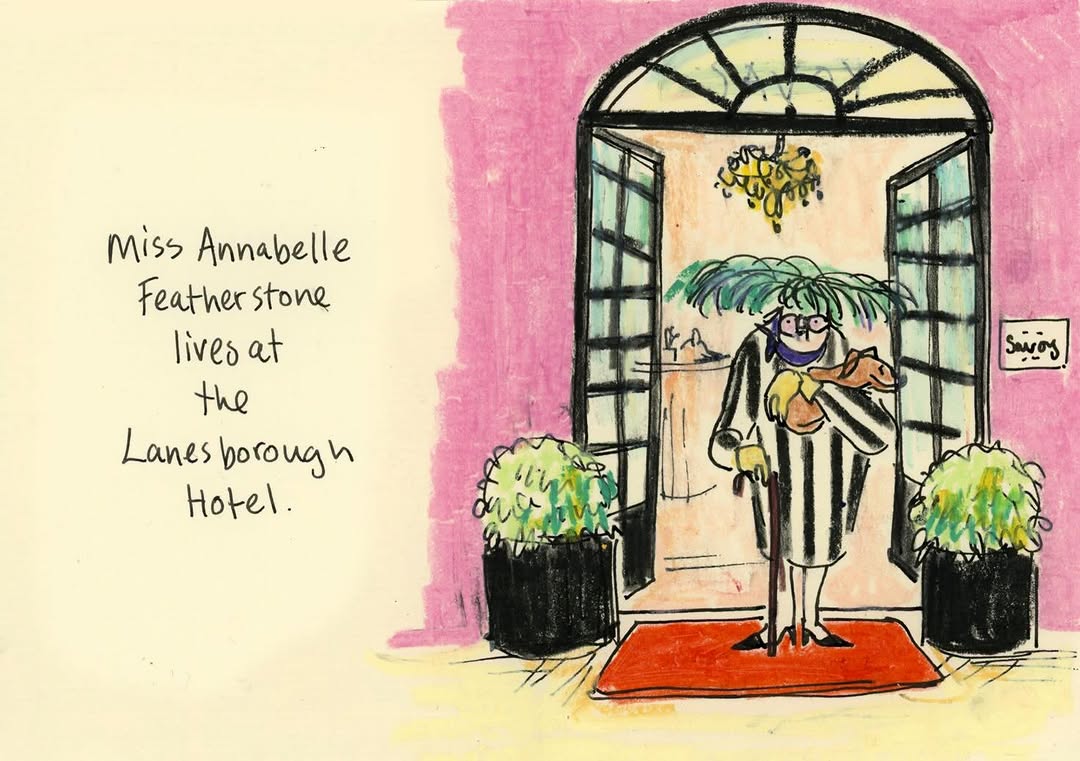 Miss Annabelle
Featherstone
lives at
the
Lanesborough
Hotel.
Savoy